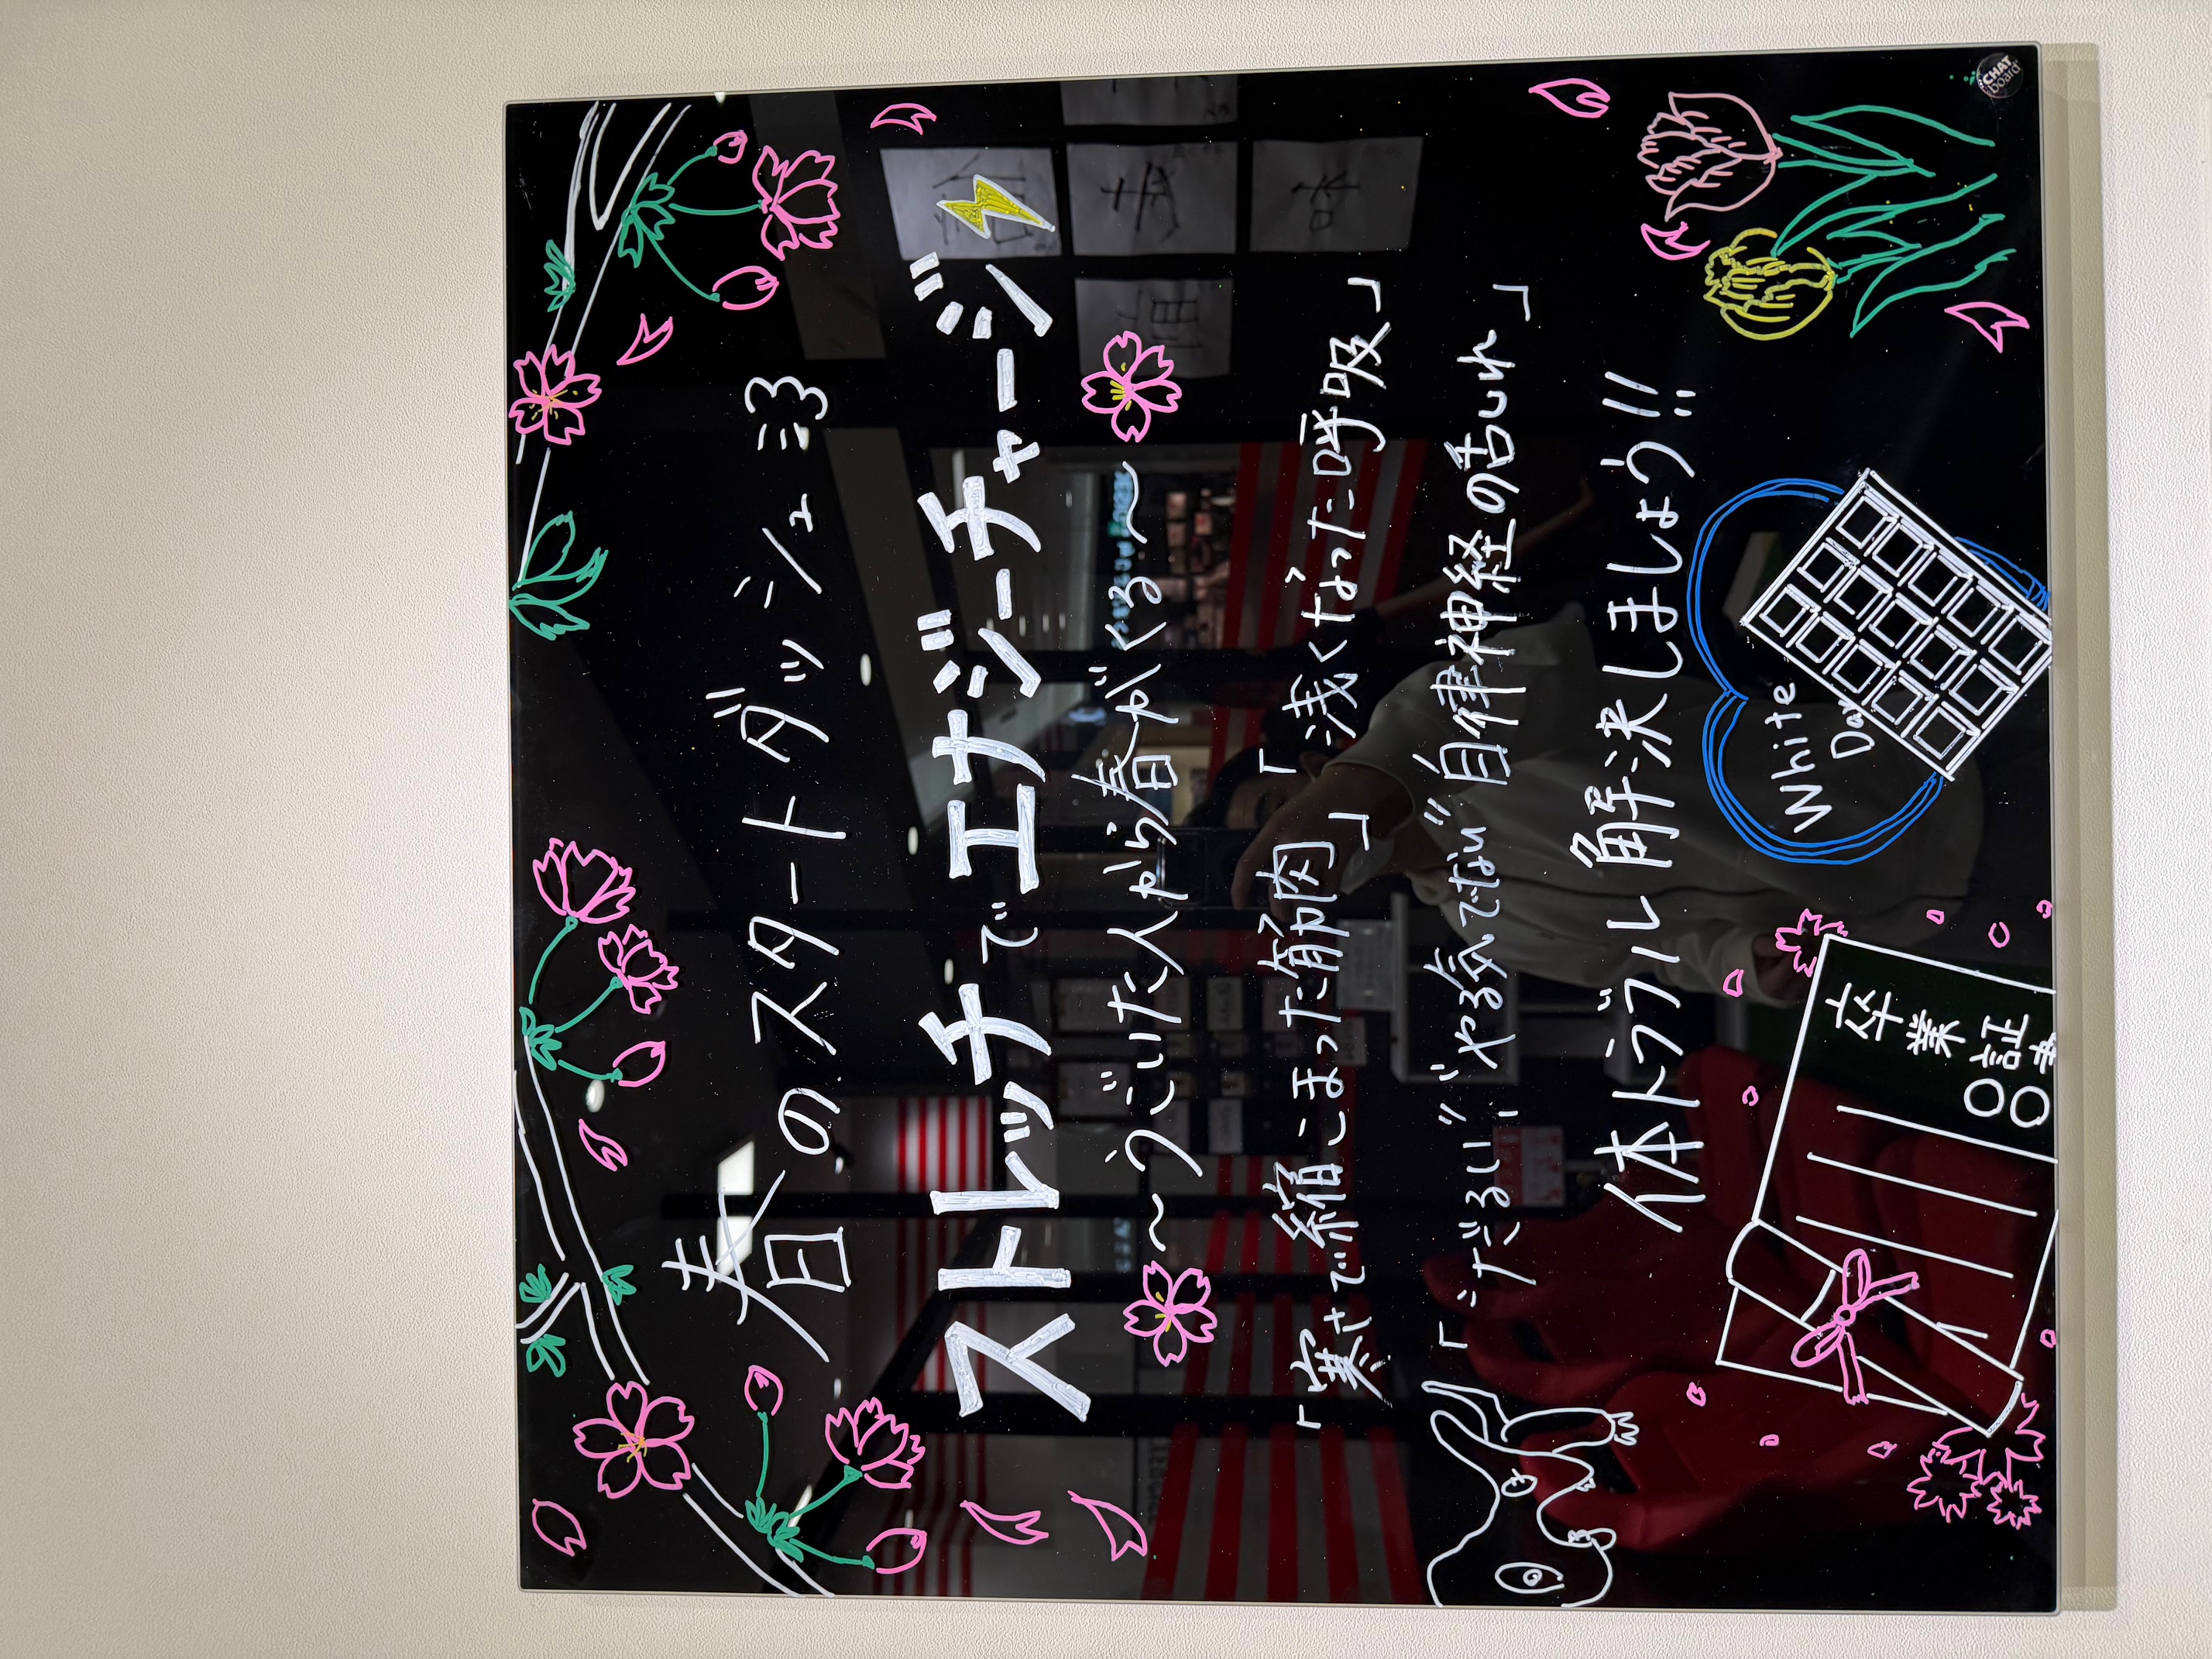 春のスタートダッシュ
ストレッチでエナジーチャージ
～うごいた人から春がくる～
「寒さで縮こまった筋肉」「浅くなった呼吸」
「"だるい""やる気でない"自律神経の乱れ」
体トラブル解決しましょう!!
White
Day
卒業証書
○○
CHAT
board